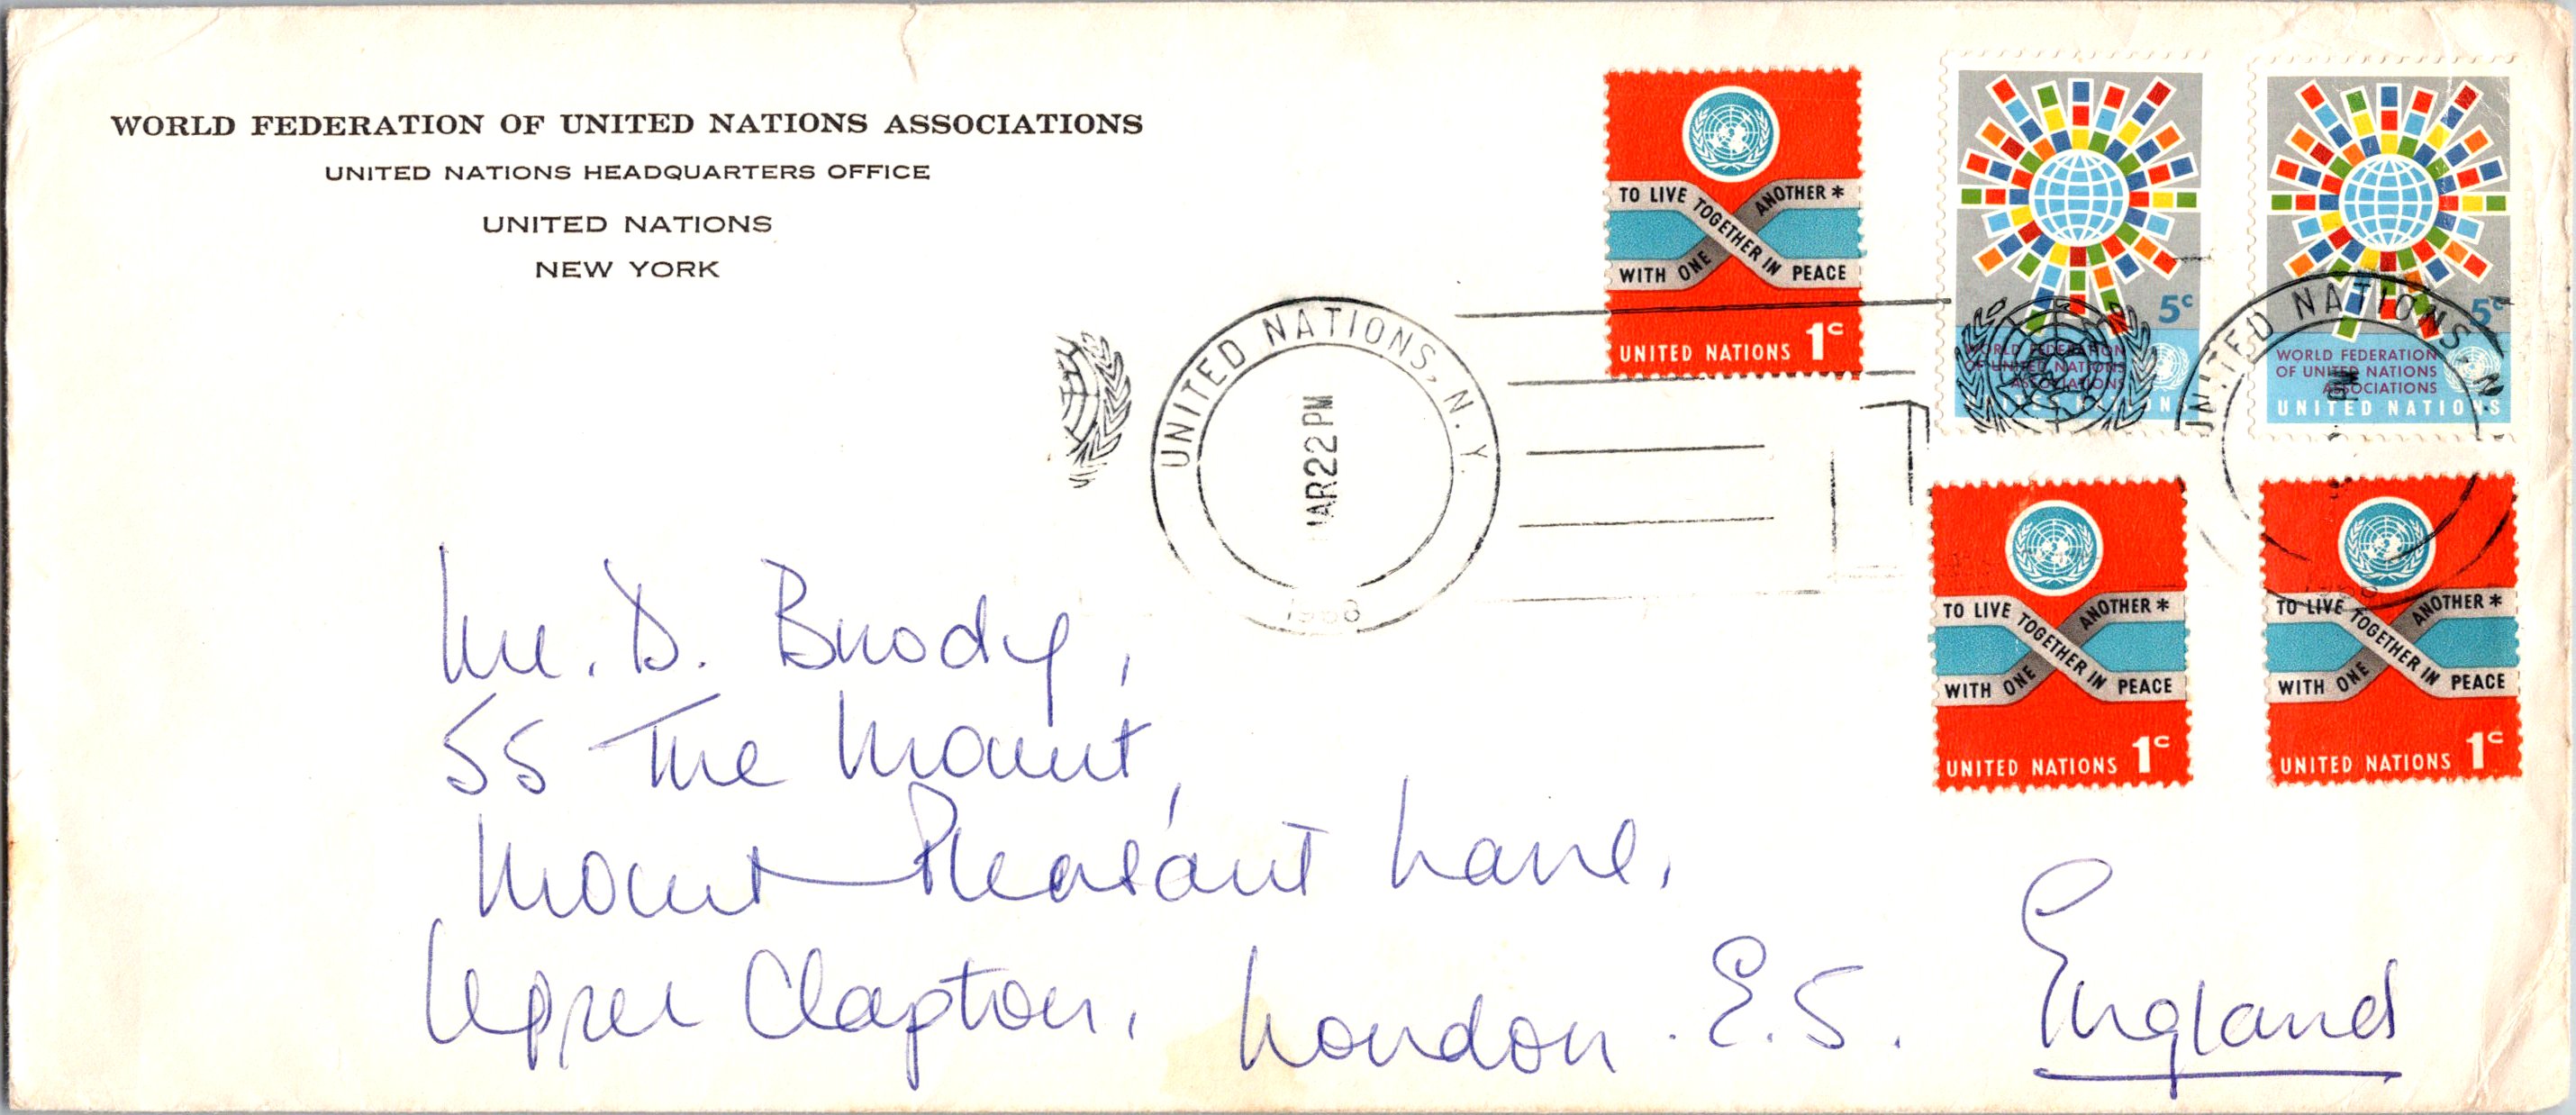 WORLD FEDERATION OF UNITED NATIONS ASSOCIATIONS
UNITED NATIONS HEADQUARTERS OFFICE
UNITED NATIONS
NEW YORK
TO LIVE TOGETHER IN PEACE
WITH ONE ANOTHER *
UNITED NATIONS 1c
5c
WORLD FEDERATION
OF UNITED NATIONS
ASSOCIATIONS
UNITED NATIONS
5c
WORLD FEDERATION
OF UNITED NATIONS
ASSOCIATIONS
UNITED NATIONS
UNITED NATIONS, N.Y.
MAR 22 PM
UNITED NATIONS, N.
PM
TO LIVE TOGETHER IN PEACE
WITH ONE ANOTHER *
UNITED NATIONS 1c
TO LIVE TOGETHER IN PEACE
WITH ONE ANOTHER *
UNITED NATIONS 1c
Mr. D. Brody,
55 The Mount,
Mount Pleasant Lane,
Upper Clapton, London. E.5. England